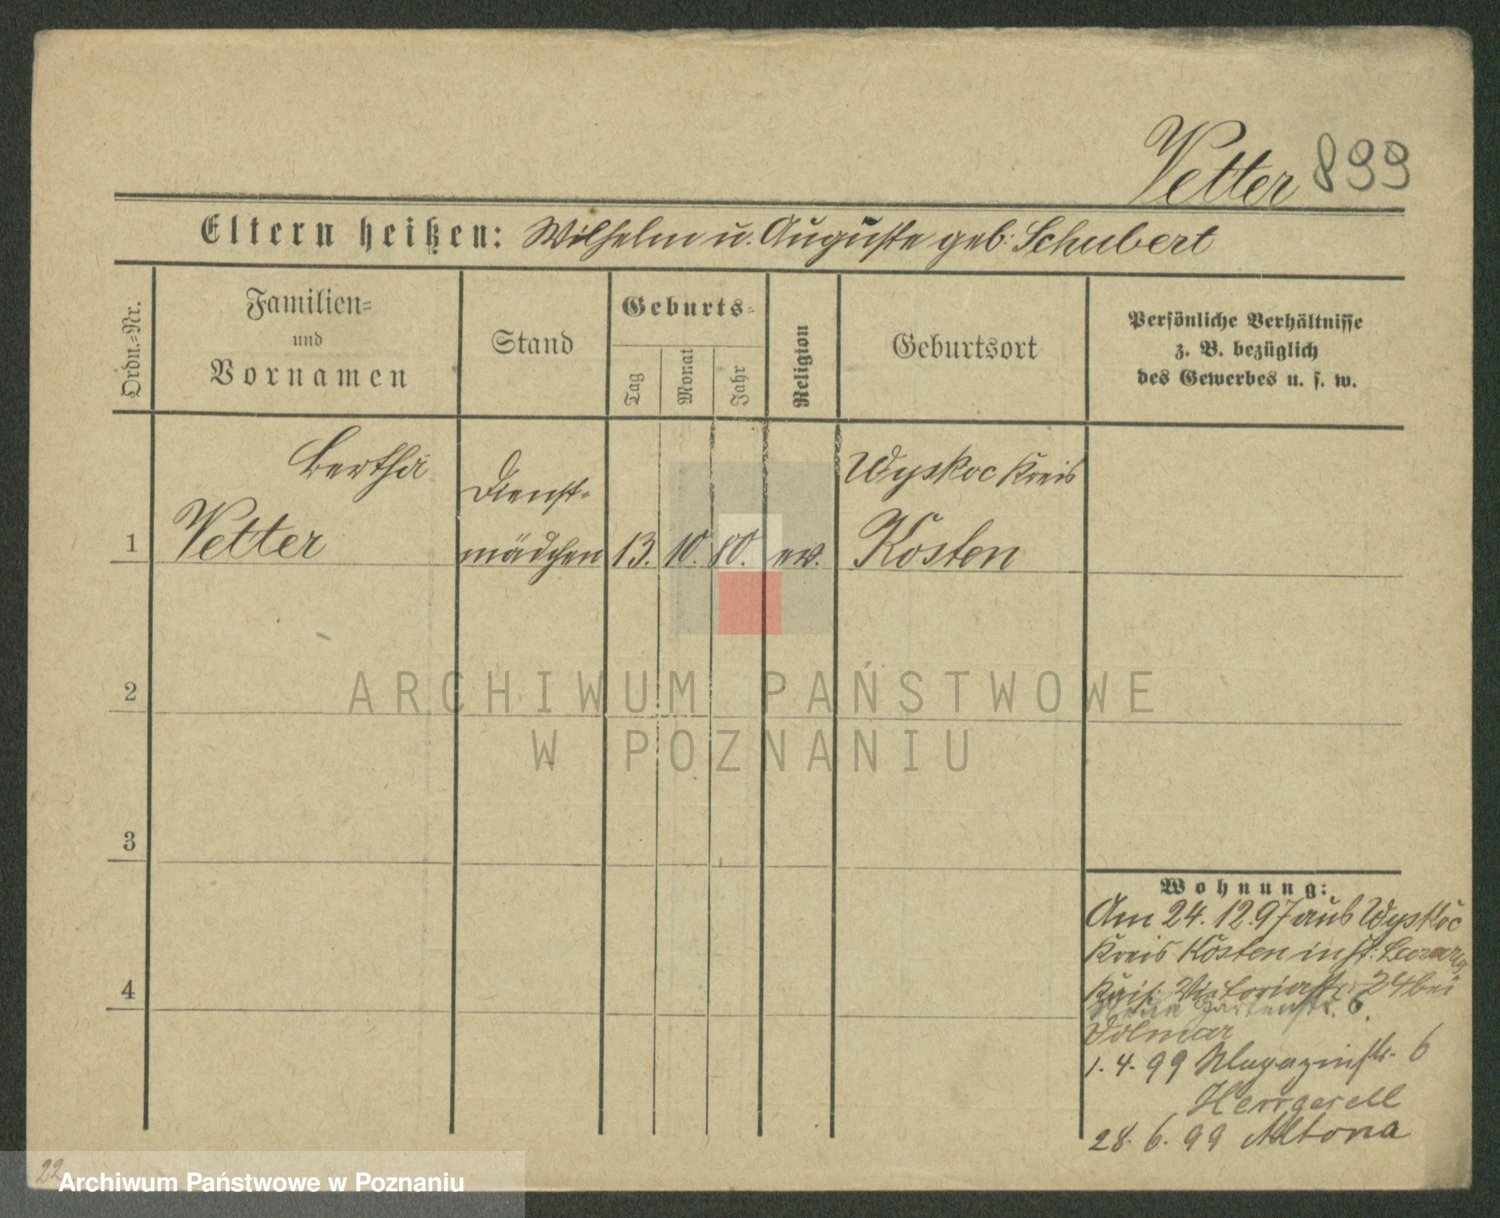 Vetter 899
Eltern heißen: Wilhelm u. Auguste geb. Schubert
Ordn.-Nr.
Familien-
und
Vornamen
Stand
Geburts-
Tag
Monat
Jahr
Religion
Geburtsort
Persönliche Verhältnisse
z. B. bezüglich
des Gewerbes u. s. w.
Bertha
Dienst-
Wyskoc Kreis
1 Vetter mädchen 13. 10. 80. ev. Kosten
2
3
4
Wohnung:
Am 24. 12. 97 aus Wyskoc
Kreis Kosten in St. Lazarus
Kais. Victoriastr. 24 bei
Gartenstr. 6.
Volmar
1. 4. 99 Magazinstr. 6
Herrgesell
28. 6. 99 Altona
22
ARCHIWUM PAŃSTWOWE
W POZNANIU
Archiwum Państwowe w Poznaniu